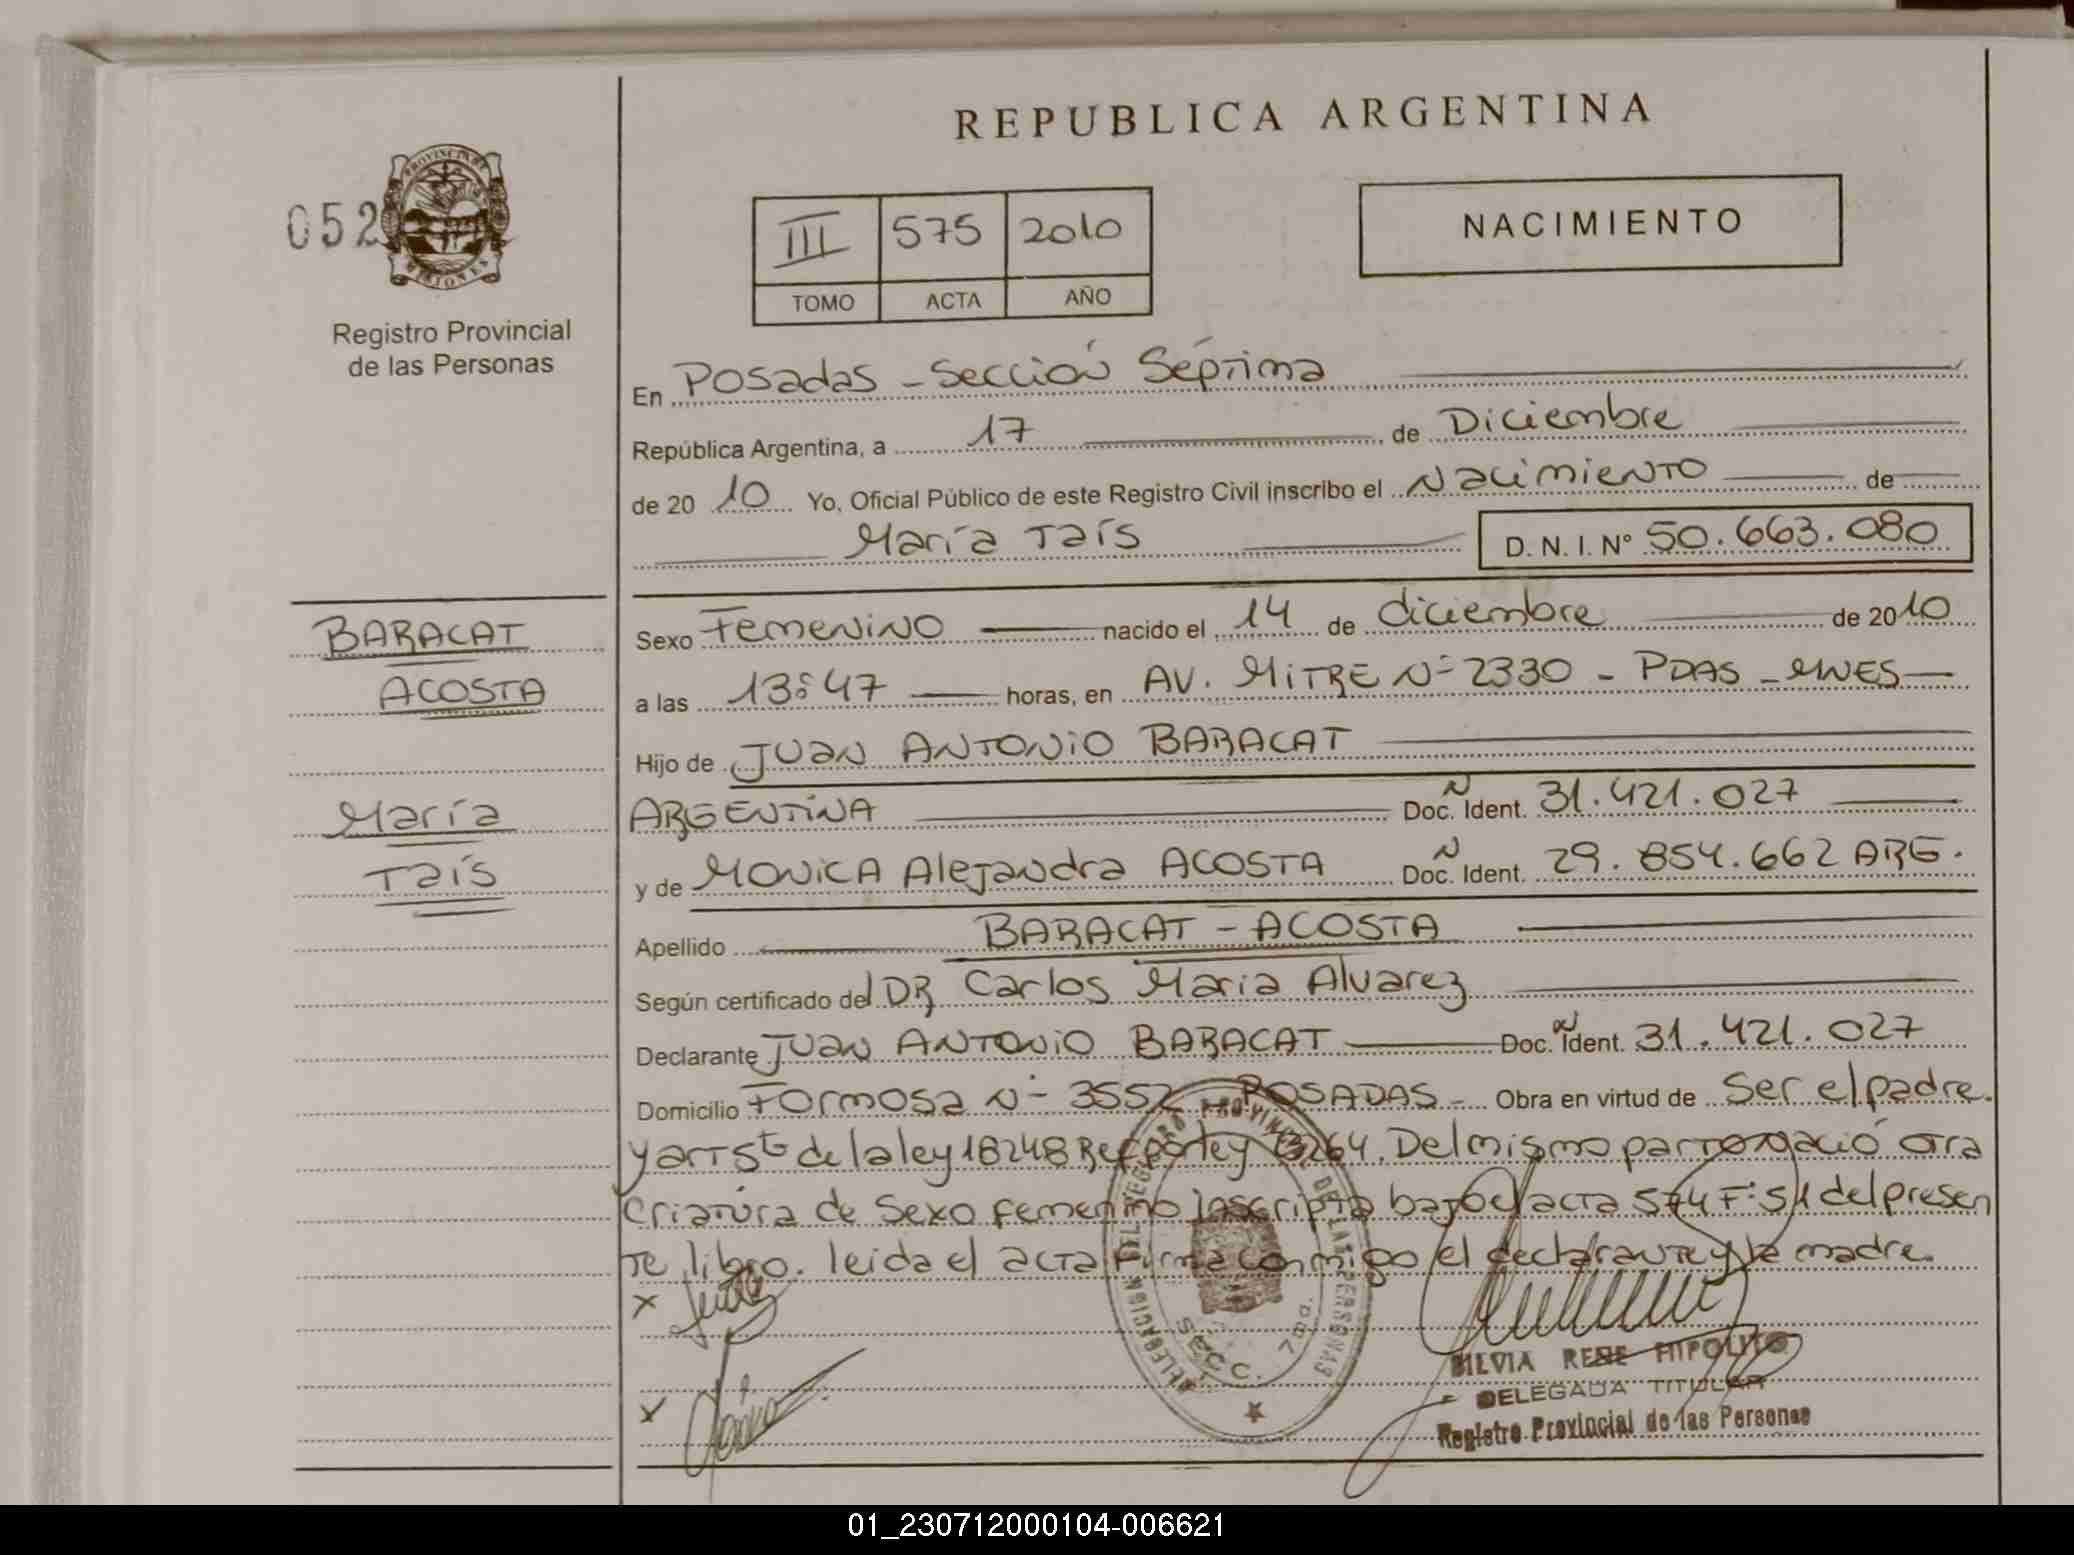 REPUBLICA ARGENTINA
052
PROVINCIA DE
MISIONES
Registro Provincial
de las Personas
III 575 2010
TOMO ACTA AÑO
NACIMIENTO
En Posadas - Sección Séptima
República Argentina, a 17 de Diciembre
de 2010 Yo, Oficial Público de este Registro Civil inscribo el Nacimiento de
María Taís D. N. I. Nº 50.663.080
BARACAT
ACOSTA
María
Taís
Sexo Femenino nacido el 14 de diciembre de 2010
a las 13:47 horas, en AV. MITRE Nº 2330 - PDAS - MNES
Hijo de JUAN ANTONIO BARACAT
ARGENTINA Doc. N Ident. 31.421.027
y de MONICA Alejandra ACOSTA Doc. N Ident. 29.854.662 ARG.
Apellido BARACAT - ACOSTA
Según certificado del DR Carlos Maria Alvarez
Declarante JUAN ANTONIO BARACAT Doc. N Ident. 31.421.027
Domicilio Formosa Nº 3552 POSADAS - Obra en virtud de Ser el padre.
y art 5to de la ley 18248 Ref por ley 23264. Del mismo parto nació otra
criatura de sexo femenino Inscripta bajo el acta 574 Fº 51 del presen
te libro. leida el acta firma conmigo el declarante y la madre.
DELEGACION DEL REGISTRO PROVINCIAL DE LAS PERSONAS
SECC. 7ma.
SILVIA RENE HIPOLITO
DELEGADA TITULAR
Registro Provincial de las Personas
01_230712000104-006621